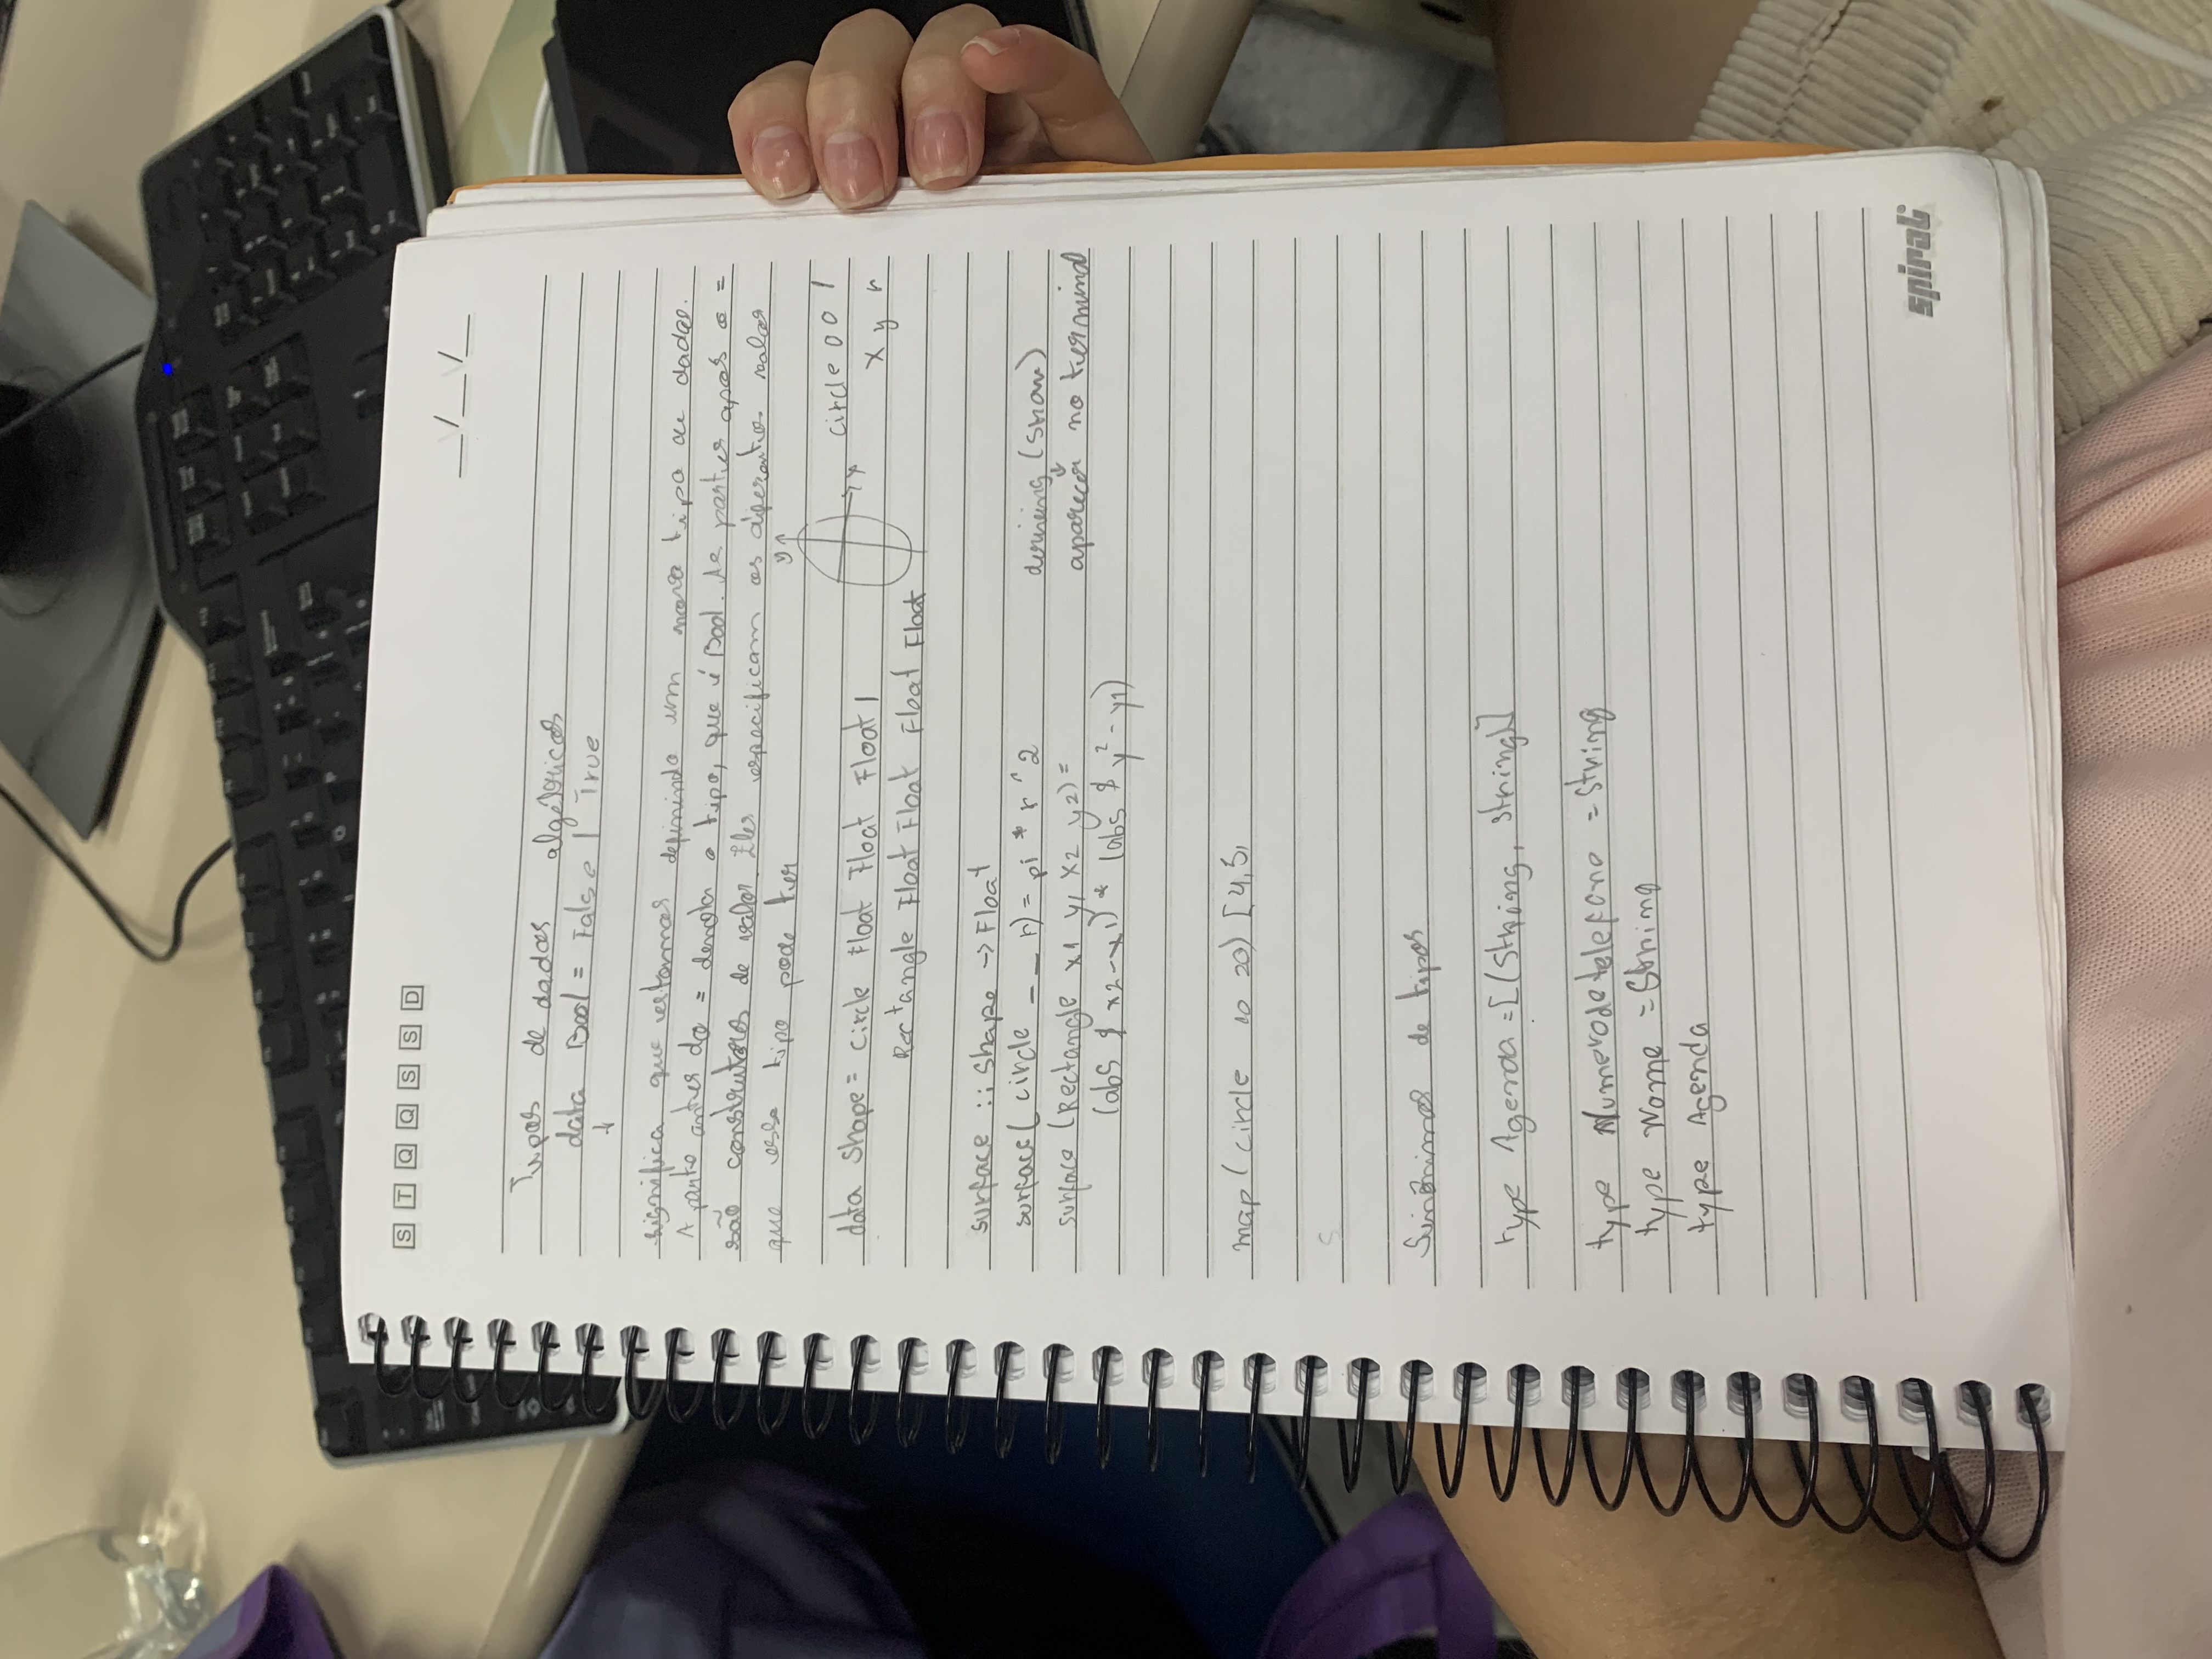 S T Q Q S S D
__/__/__
Tipos de dados algébricos
data Bool = False | True
↓
significa que estamos definindo um novo tipo de dados.
A parte antes do = denota o tipo, que é Bool. As partes após o =
são construtores de valor. Eles especificam os diferentes valores
que esse tipo pode ter
y
x
circle 0 0 1
x y r
data Shape = Circle Float Float Float |
Rectangle Float Float Float Float
surface :: Shape -> Float
surface ( circle _ _ r) = pi * r ^ 2
deriving (Show)
surface (Rectangle x1 y1 x2 y2) =
↓
aparecer no terminal
(abs $ x2 - x1) * (abs $ y2 - y1)
map (circle 10 20) [4,5,
S
Sinônimos de tipos
type Agenda = [(String, String)]
type Numerodetelefono = String
type Nome = String
type Agenda
spiral